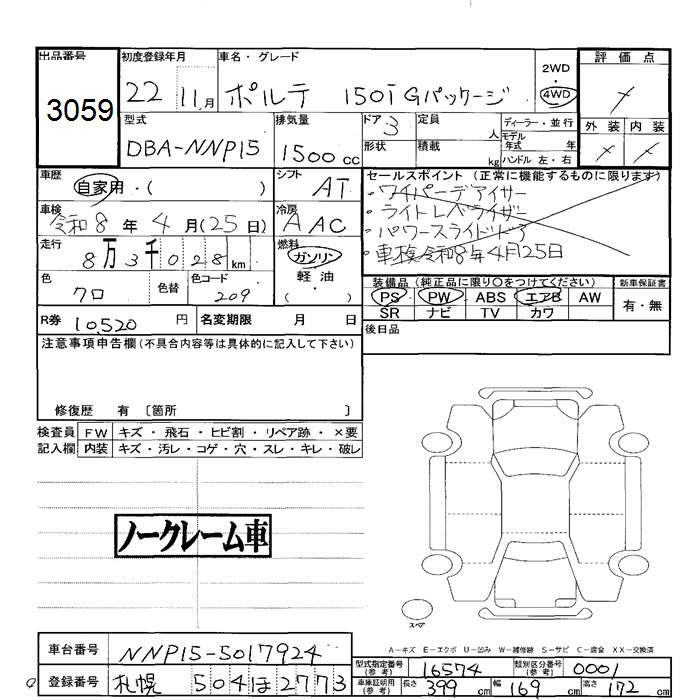 出品番号 初度登録年月 車名・グレード 2WD 評価点
3059 22 11月 ポルテ 150i Gパッケージ ・4WD
型式 排気量 ドア 3 定員 人 ディーラー・並行 外装 内装
DBA-NNP15 1500cc 形状 積載 kg モデル年式 年式
ハンドル 左・右
車歴 自家用・( ) シフト AT セールスポイント (正常に機能するものに限ります)
・ワイパーデアイサー
車検 令和8年4月(25日) 冷房 AAC ・ライトレベライザー
・パワースライドドア
走行 8万3千028km 燃料 ガソリン・軽油・ ・車検令和8年4月25日
色 クロ 色替 色コード 209 装備品(純正品に限り○をつけてください) 新車保証書
PS PW ABS エアB AW 有・無
SR ナビ TV カワ
R券 10,520円 名変期限 月 日 後日品
注意事項申告欄(不具合内容等は具体的に記入して下さい)
修復歴 有 〔箇所 〕
検査員 FW キズ・飛石・ヒビ割・リペア跡・×要
記入欄 内装 キズ・汚レ・コゲ・穴・スレ・キレ・破レ
ノークレーム車
スペア
A-キズ E-エクボ U-凹み W-補修跡 S-サビ C-腐食 XX-交換済
車台番号 NNP15-5017924 型式指定番号(参考) 16574 類別区分番号(参考) 0001
登録番号 札幌 504 ほ 2773 車庫証明用(参考) 長さ 399cm 幅 169cm 高さ 172cm